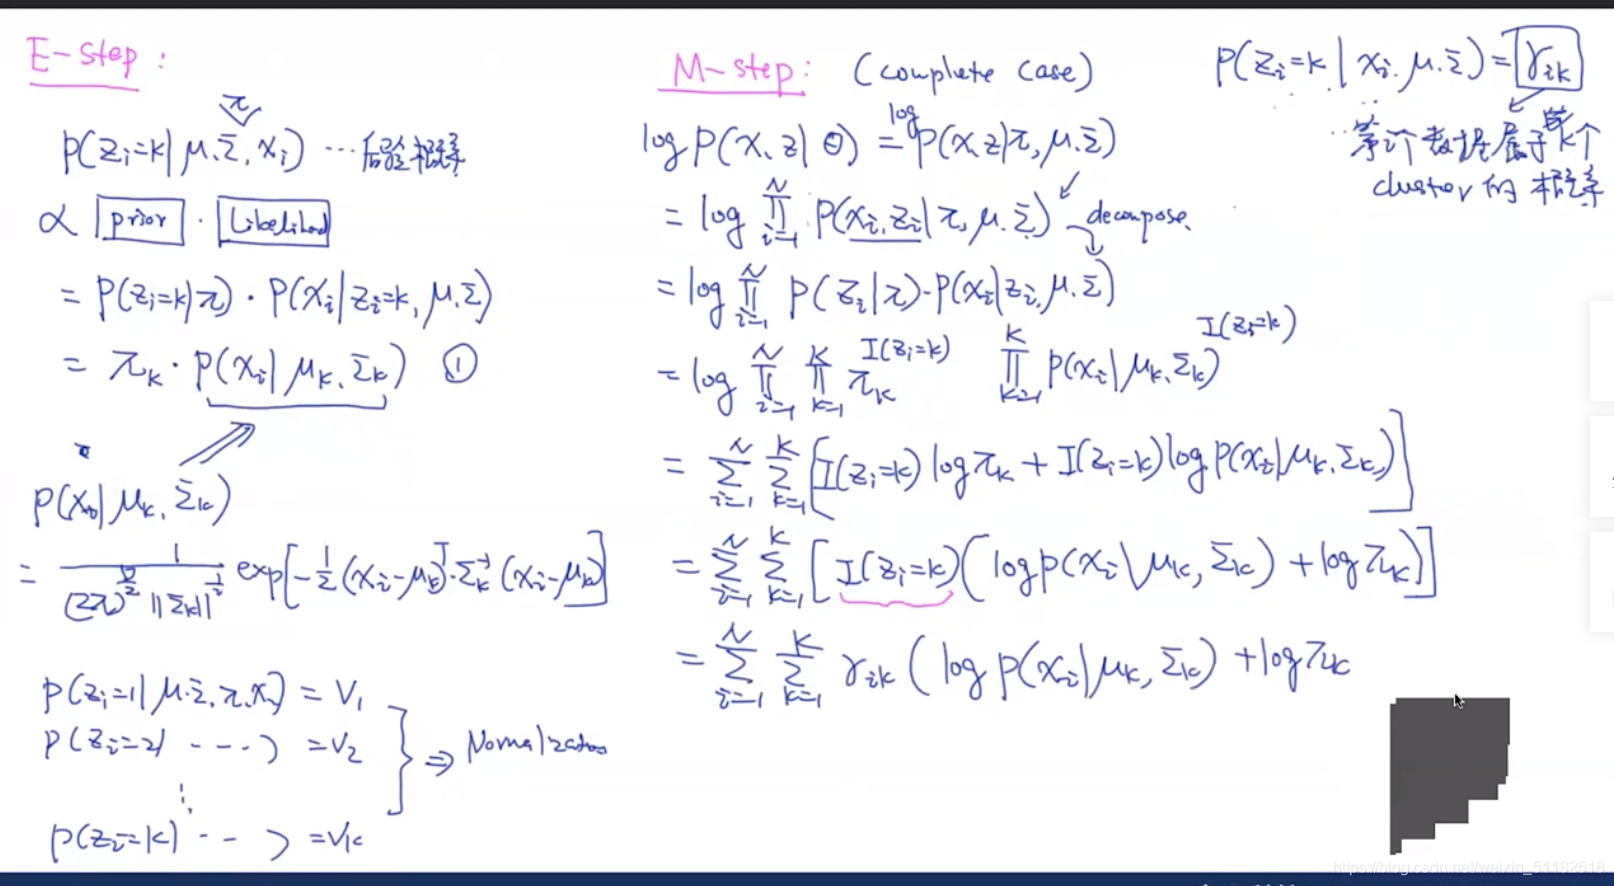 E-step:
π
p(z_i=k | μ.Σ, x_i) ... 后验概率
∝ prior · Likelihood
= p(z_i=k|π) · p(x_i | z_i=k, μ.Σ)
= π_k · p(x_i | μ_k, Σ_k) ①
p(x_i | μ_k, Σ_k)
= 1 / ((2π)^{D/2} ||Σ_k||^{1/2}) exp[-1/2 (x_i-μ_k)^T · Σ_k^{-1} (x_i-μ_k)]
p(z_i=1 | μ.Σ, π, x_i) = V_1
p(z_i=2 | ---- ) = V_2
⋮
p(z_i=k | -- ) = V_k
⇒ Normalization
M-step: (complete case)
log p(x, z | θ) = log p(x, z | π, μ.Σ)
= log ∏_{i=1}^{N} p(x_i, z_i | π, μ.Σ) decompose.
= log ∏_{i=1}^{N} p(z_i | π) · p(x_i | z_i, μ.Σ)
= log ∏_{i=1}^{N} ∏_{k=1}^{K} π_k^{I(z_i=k)} ∏_{k=1}^{K} p(x_i | μ_k, Σ_k)^{I(z_i=k)}
= ∑_{i=1}^{N} ∑_{k=1}^{K} [I(z_i=k) log π_k + I(z_i=k) log p(x_i | μ_k, Σ_k)]
= ∑_{i=1}^{N} ∑_{k=1}^{K} [I(z_i=k) (log p(x_i \ μ_k, Σ_k) + log π_k)]
= ∑_{i=1}^{N} ∑_{k=1}^{K} γ_ik (log p(x_i | μ_k, Σ_k) + log π_k
p(z_i=k | x_i, μ.Σ) = γ_ik
第i个数据属于第k个
cluster的概率
https://blog.csdn.net/weixin_51182518